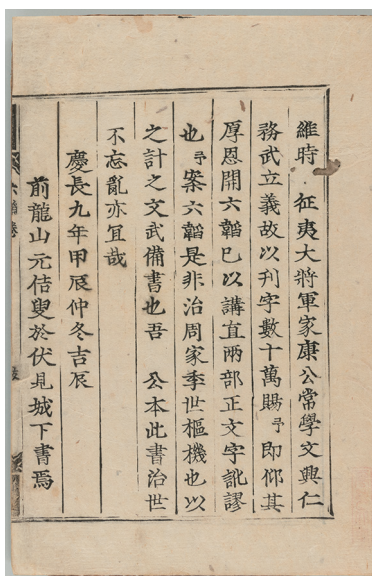 維時 征夷大將軍家康公常學文興仁
務武立義故以刊字數十萬賜予即仰其
厚恩開六韜已以講宜兩部正文字訛謬
也予案六韜是非治周家季世樞機也以
之計之文武備書也吾 公本此書治世
不忘亂亦宜哉
慶長九年甲辰仲冬吉辰
前龍山元佶叟於伏見城下書焉
六韜卷